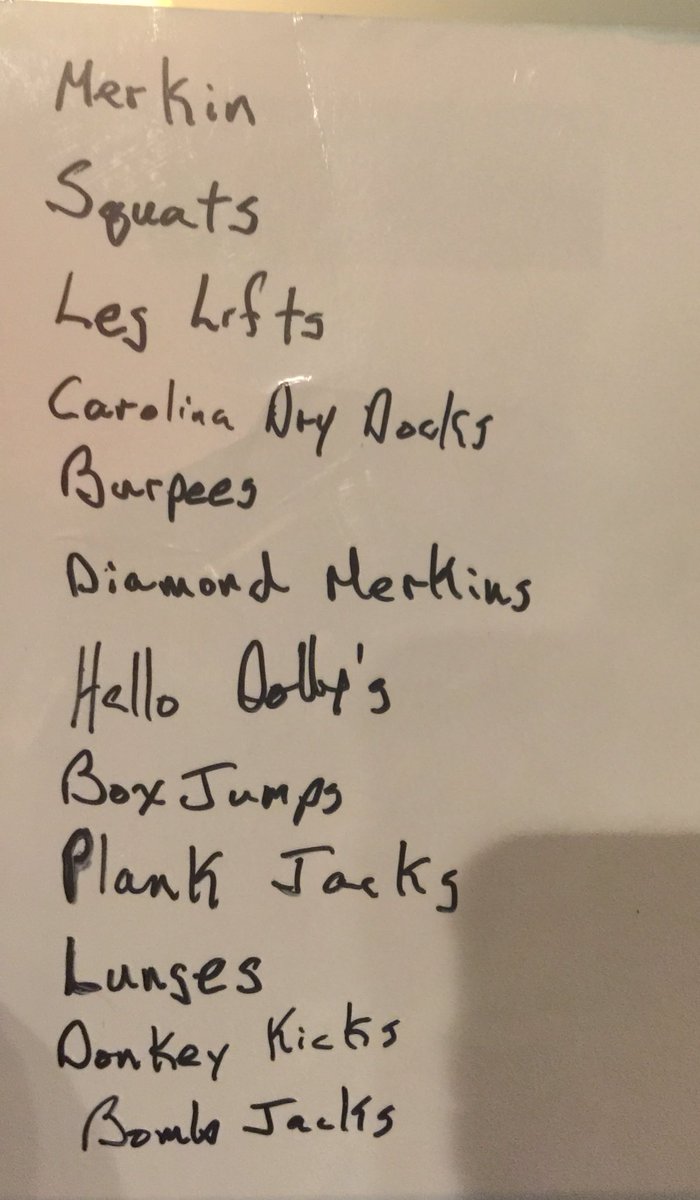 Merkin
Squats
Leg Lifts
Carolina Dry Docks
Burpees
Diamond Merkins
Hello Dolly's
Box Jumps
Plank Jacks
Lunges
Donkey Kicks
Bomb Jacks